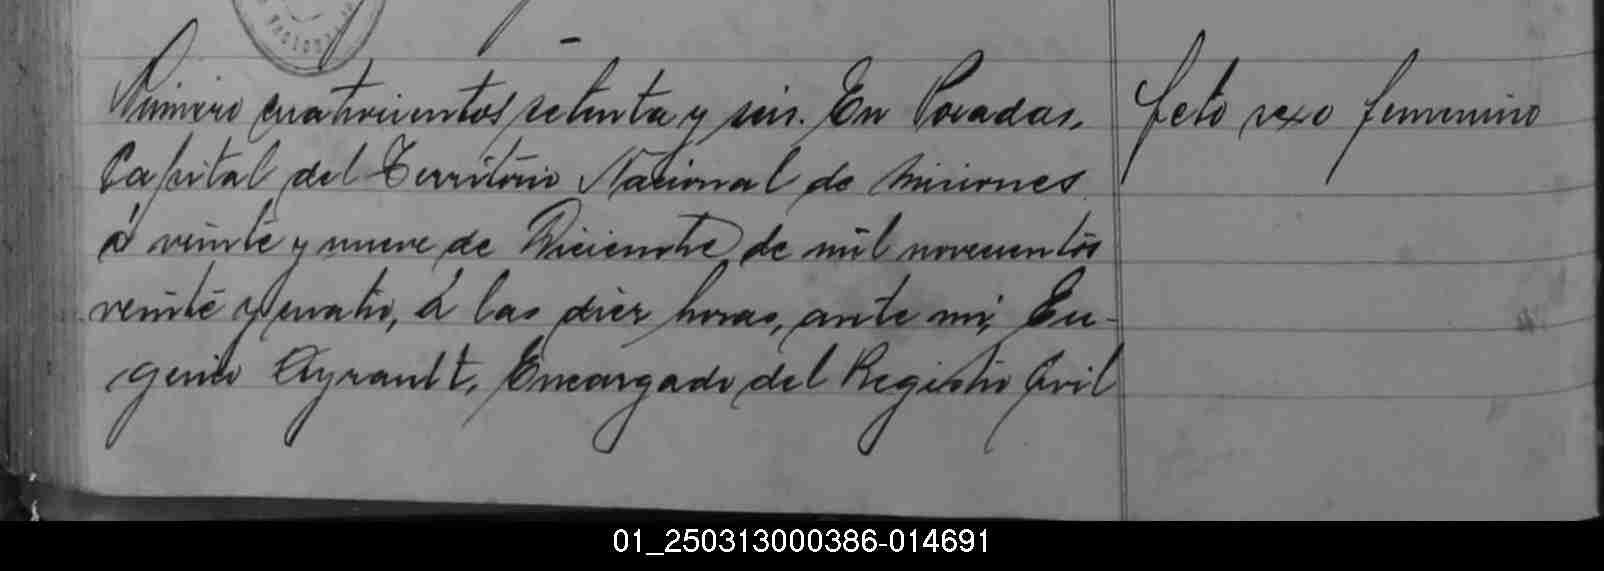 NACIONAL
Número cuatrocientos setenta y seis. En Posadas,
Capital del Territorio Nacional de Misiones
á veinte y nueve de Diciembre de mil novecientos
veinte y cuatro, á las diez horas, ante mi, Eu-
genio Ayrault, Encargado del Registro Civil
feto sexo femenino
01_250313000386-014691